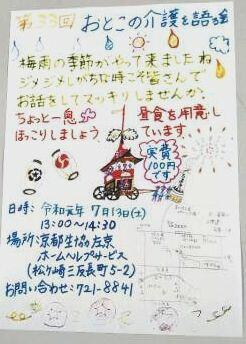 第33回 おとこの介護を語る会
梅雨の季節がやって来ましたね
ジメジメしがちな時こそ皆さんで
お話をしてスッキリしませんか。
ちょっと一息
ほっこりしましょう
昼食を用意し
ています。
実費
100円
です
日時：令和元年7月13日(土)
13:00〜14:30
場所：京都生協左京
ホームヘルプサービス
(松ヶ崎三反長町5-2)
お問い合わせ：721-8841